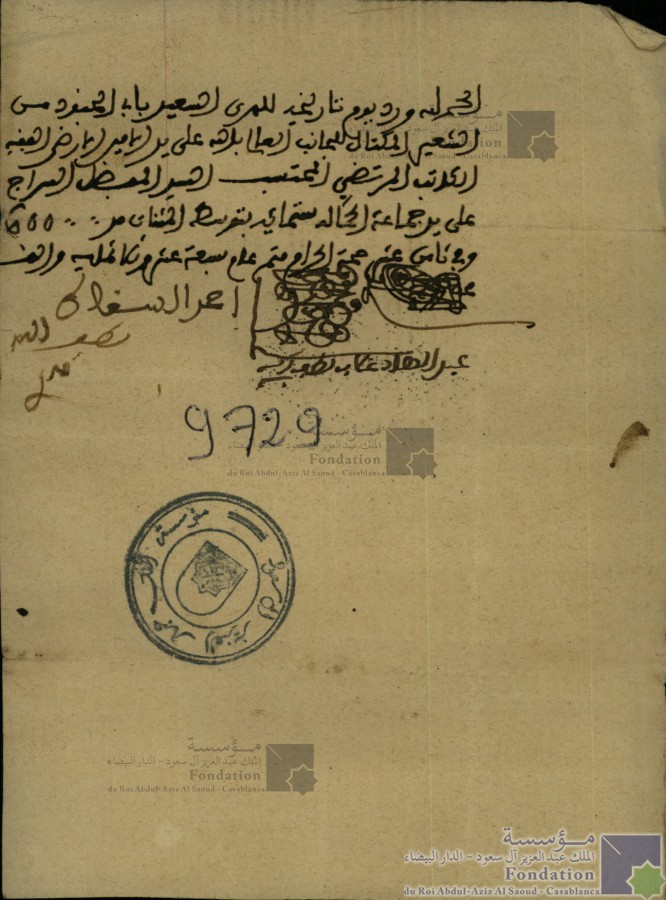 الحمد لله ورد يوم تاريخه للمرسى السعيد باب الجنود من
الشعير المكتال للجانب العالي بالله على يد الأمين الأرضى الفقيه
الكاتب المرتضي المحتسب السيد المفضل السراج
على يد جماعة الكيالة ستمائة بتوسط المثنات من 600
وفي ثامن عشر حجة الحرام متم عام سبعة عشر وثلاثمائة وألف
أحمد
لطف الله
عبد
9729
مؤسسة الملك عبد العزيز آل سعود
مؤسسة
الملك عبد العزيز آل سعود - الدار البيضاء
Fondation
du Roi Abdul-Aziz Al Saoud - Casablanca
مؤسسة
الملك عبد العزيز آل سعود - الدار البيضاء
Fondation
du Roi Abdul-Aziz Al Saoud - Casablanca
مؤسسة
الملك عبد العزيز آل سعود - الدار البيضاء
Fondation
du Roi Abdul-Aziz Al Saoud - Casablanca
مؤسسة
الملك عبد العزيز آل سعود - الدار البيضاء
Fondation
du Roi Abdul-Aziz Al Saoud - Casablanca